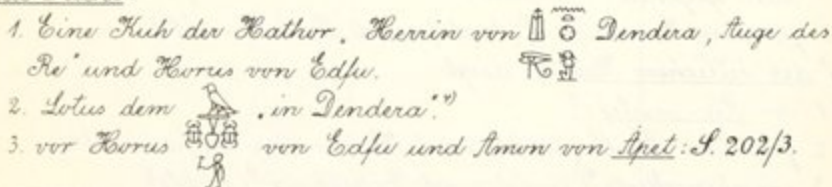 1. Eine Kuh der Hathor, Herrin von Dendera, Auge des
Re" und Horus von Edfu.
2. Lotus dem "in Dendera". 4)
3. vor Horus von Edfu und Amon von Apet: S. 202/3.